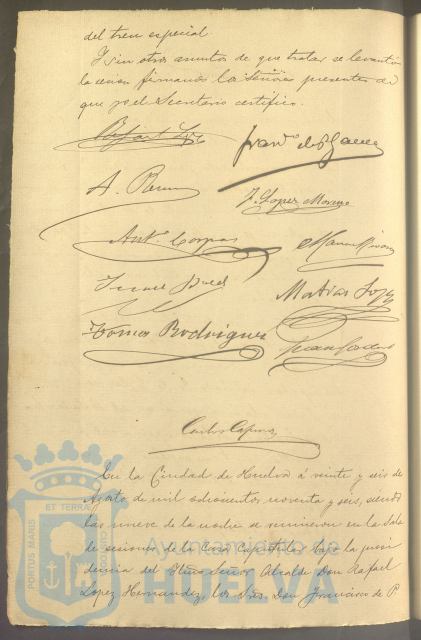 del tren especial
Y sin otros asuntos de que tratar se levantó
la sesion firmando los Señores presentes de
que yo el Secretario certifico.
Rafael Lopez
Franco de P
A.
J. Lopez Moreno
Anto Corpas
Manuel
Matias Lopez
Tomas Rodriguez
Carlos
En la Ciudad de Huelva á veinte y seis de
Agosto de mil ochocientos noventa y seis, siendo
las nueve de la noche se reunieron en la Sala
de sesiones de la Casa Capitular bajo la presi
dencia del Iltmo Señor Alcalde Don Rafael
Lopez Hernandez, los Sres. Don Francisco de P
PORTUS MARIS
ET TERRAE
CUSTODIA
Ayuntamiento de
HUELVA